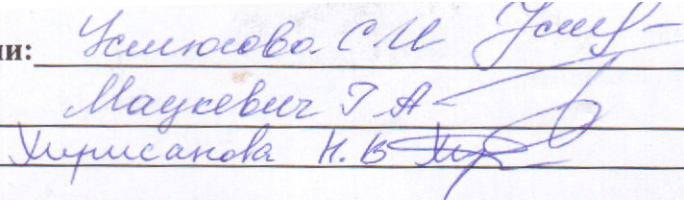 ли: Устюгова С И
Мацкевич Г А
Хирисанова Н. В